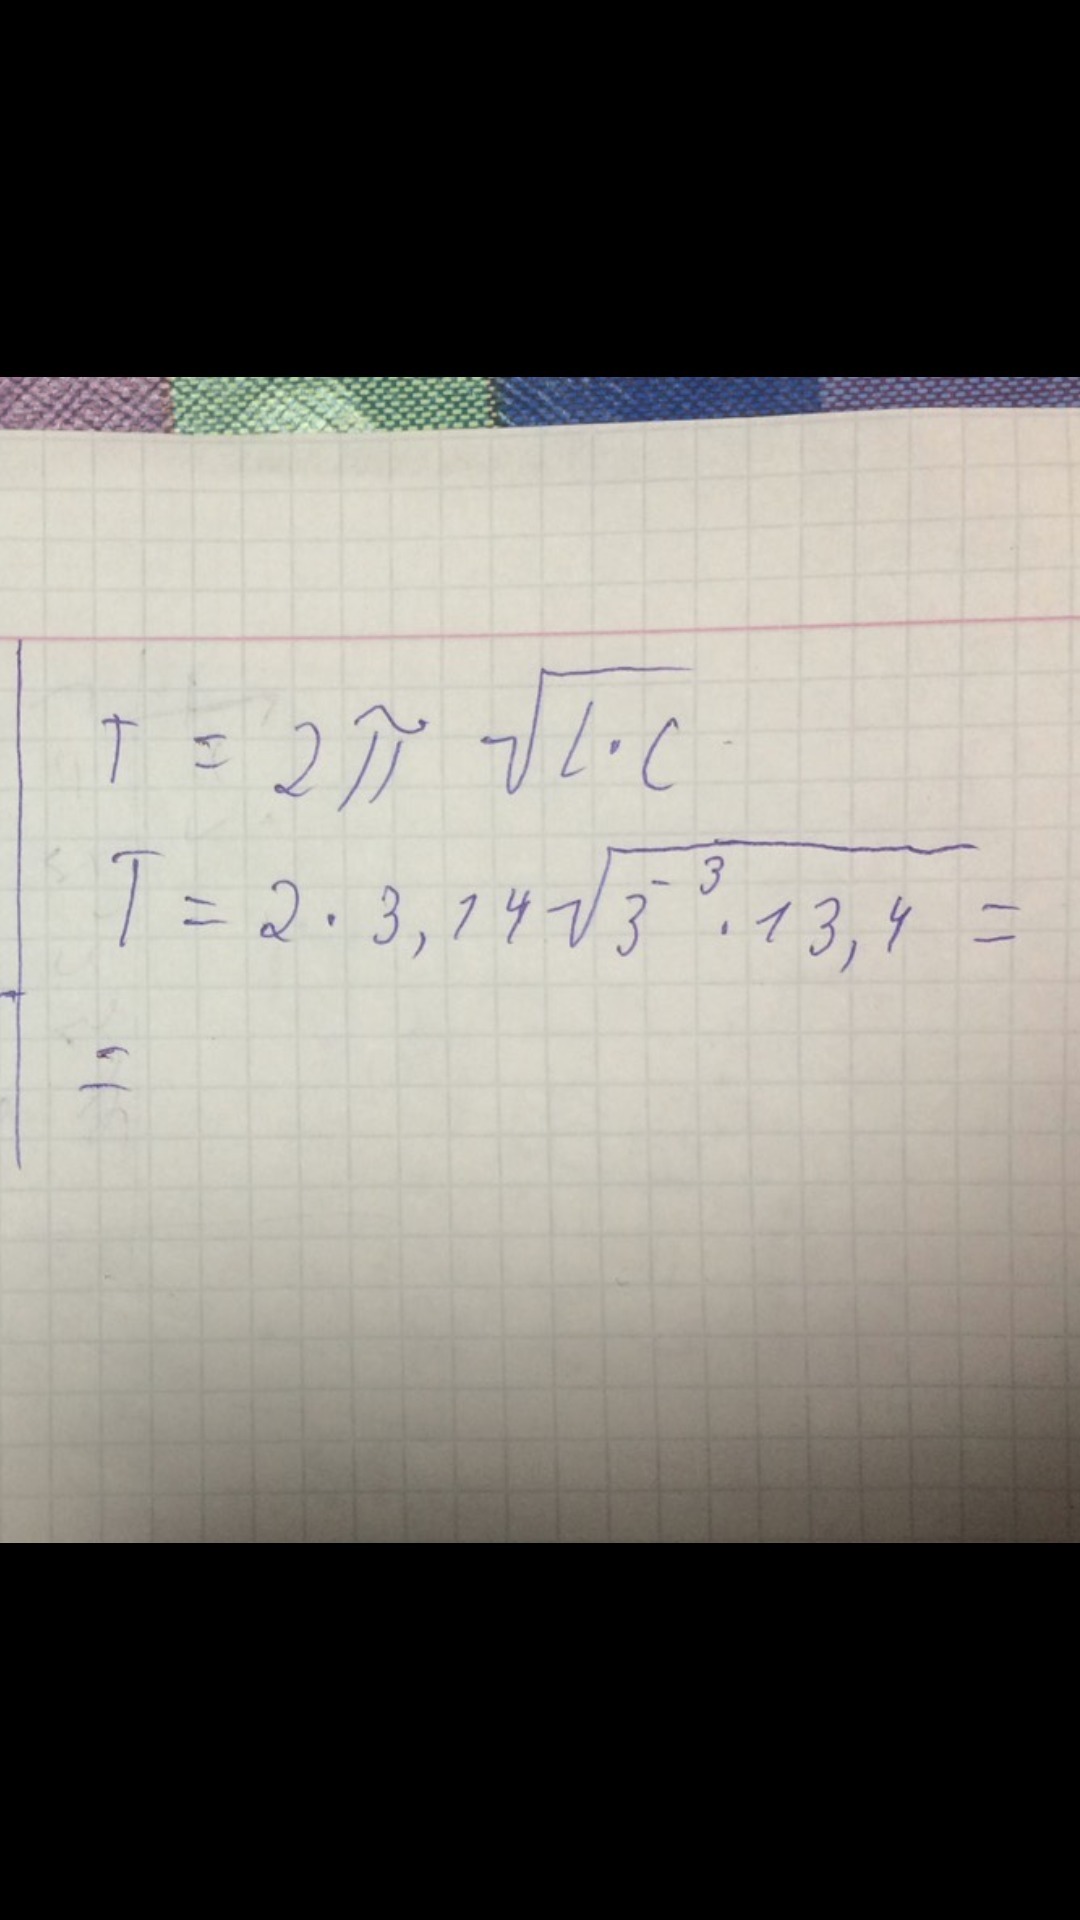 T = 2π √L·C
T = 2·3,14√3⁻³·13,4 =
=